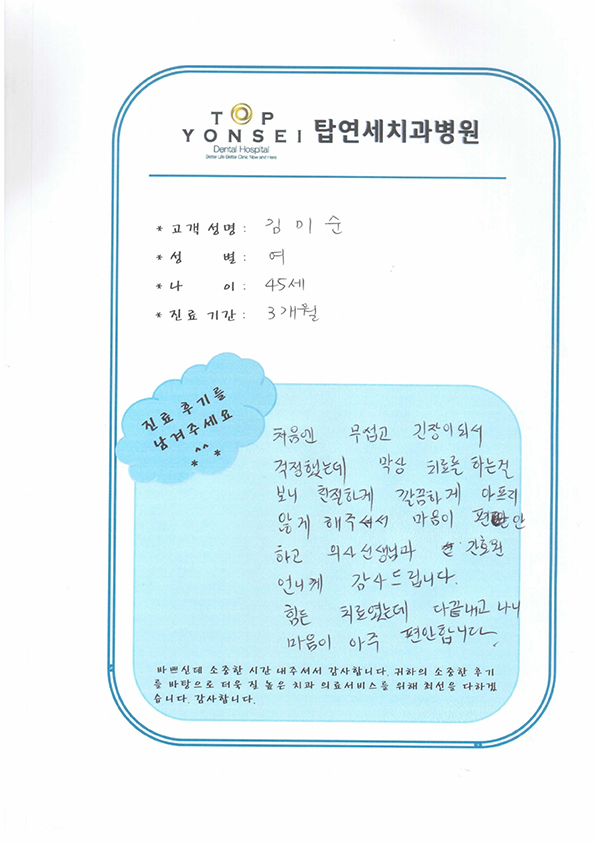 TOP
YONSEI 탑연세치과병원
Dental Hospital
Better Life Better Clinic Now and Here
* 고객 성명 : 김 이 순
* 성 별 : 여
* 나 이 : 45세
* 진료 기간 : 3개월
진료 후기를
남겨주세요
^^
* *
처음엔 무섭고 긴장이되서
걱정했는데 막상 치료를 하는걸
보니 친절하게 깔끔하게 아프지
않게 해주셔서 마음이 편안
하고 의사선생님과 간호원
언니께 감사드립니다.
힘든 치료였는데 다끝내고 나니
마음이 아주 편안합니다.
바쁘신데 소중한 시간 내주셔서 감사합니다. 귀하의 소중한 후기
를 바탕으로 더욱 질 높은 치과 의료서비스를 위해 최선을 다하겠
습니다. 감사합니다.